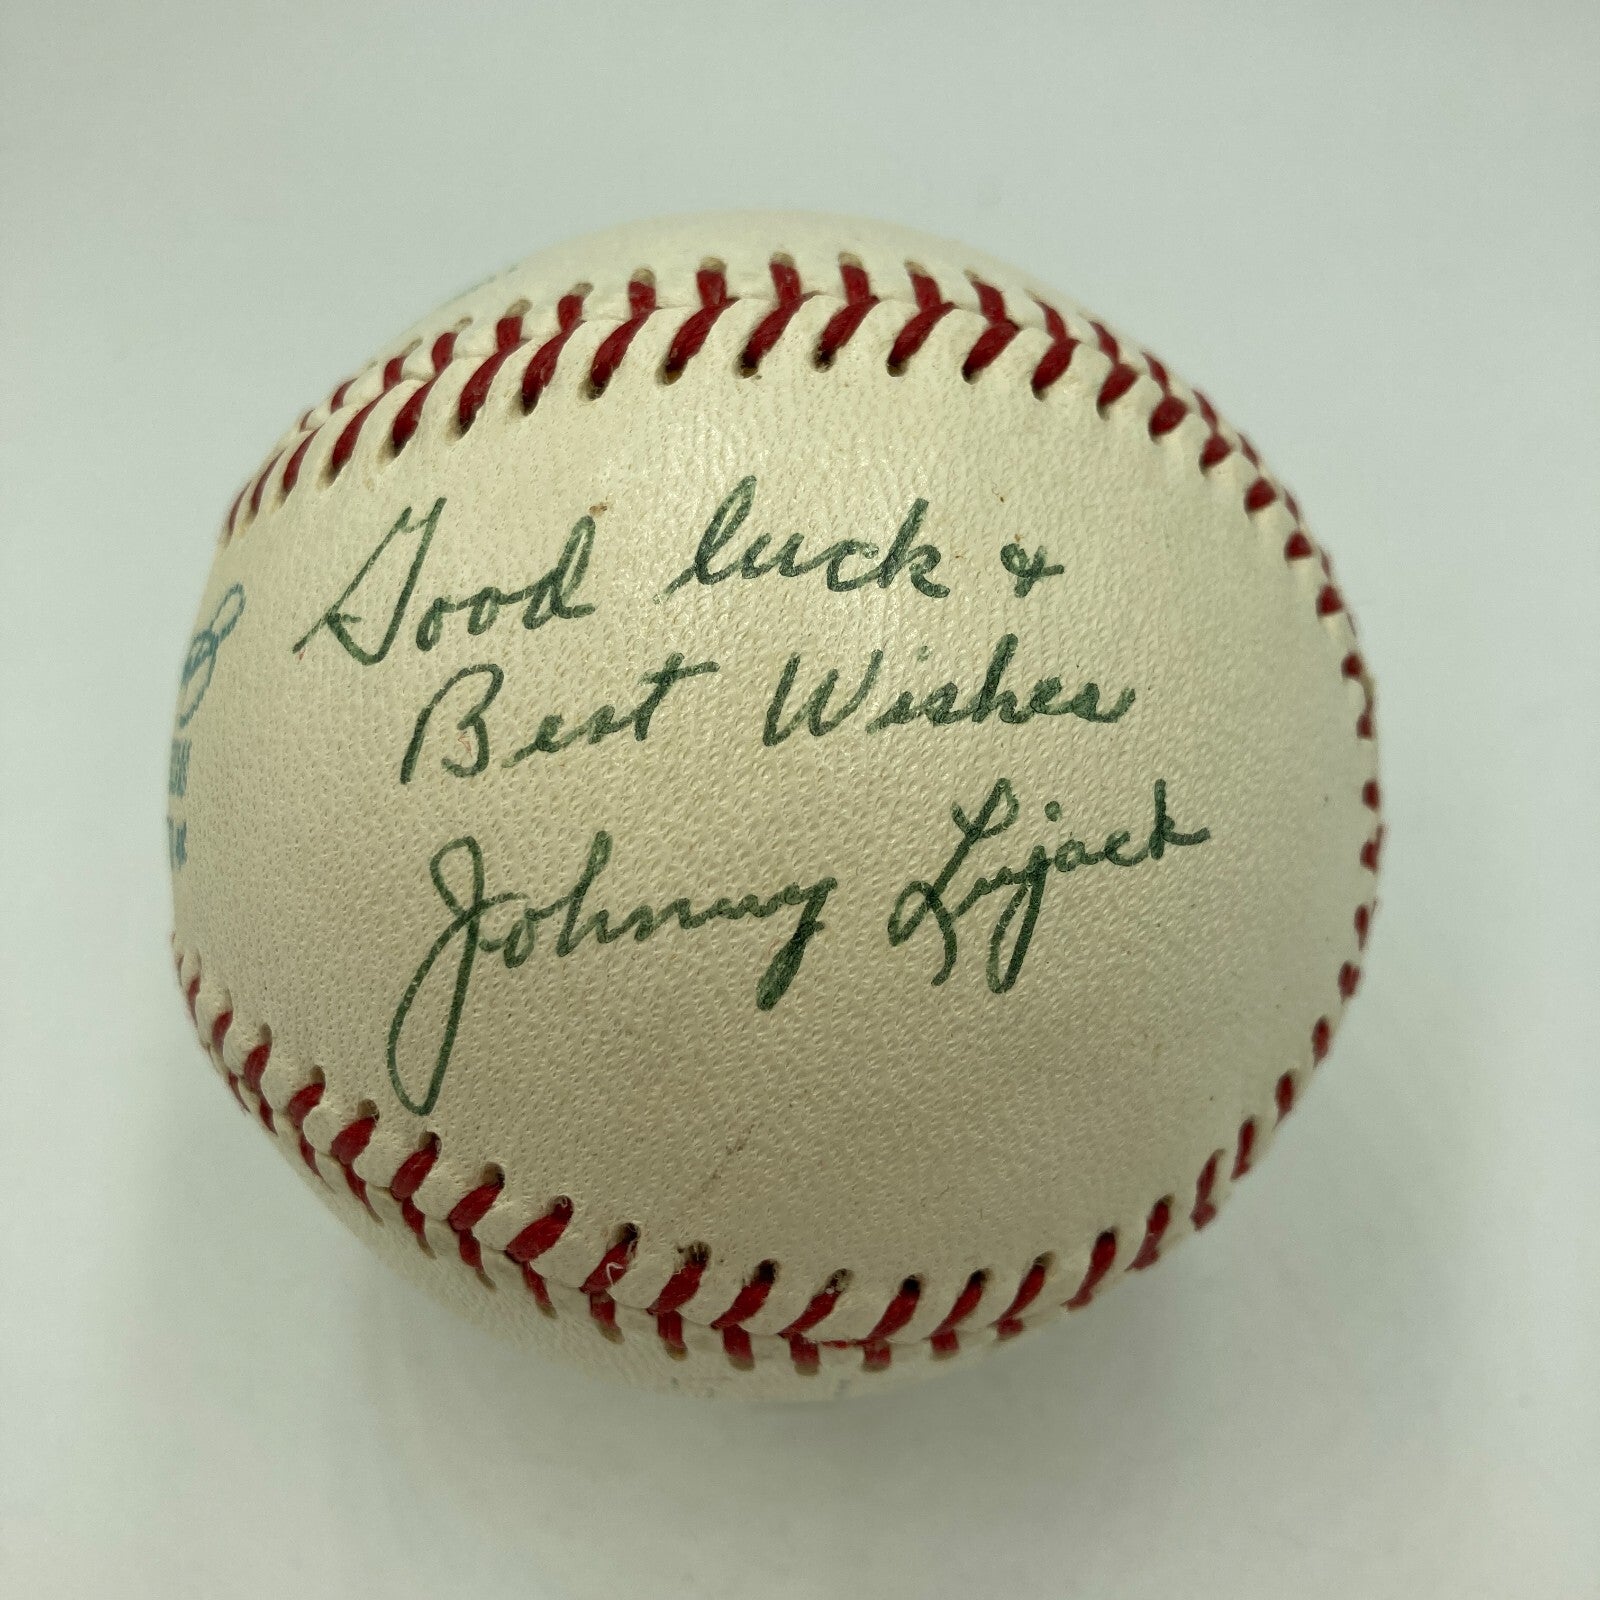 Good luck &
Best Wishes
Johnny Lujack